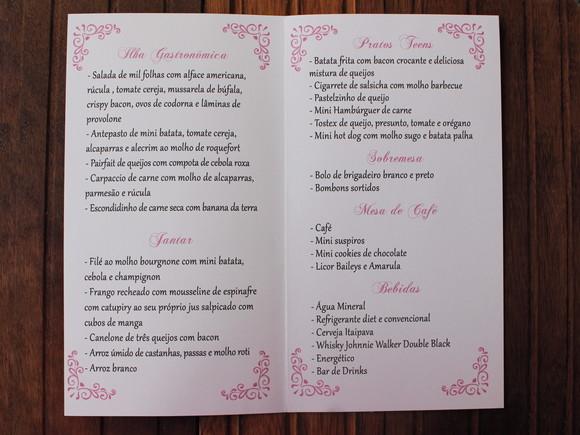 Ilha Gastronômica
- Salada de mil folhas com alface americana,
rúcula , tomate cereja, mussarela de búfala,
crispy bacon, ovos de codorna e lâminas de
provolone
- Antepasto de mini batata, tomate cereja,
alcaparras e alecrim ao molho de roquefort
- Pairfait de queijos com compota de cebola roxa
- Carpaccio de carne com molho de alcaparras,
parmesão e rúcula
- Escondidinho de carne seca com banana da terra
Jantar
- Filé ao molho bourgnone com mini batata,
cebola e champignon
- Frango recheado com mousseline de espinafre
com catupiry ao seu próprio jus salpicado com
cubos de manga
- Canelone de três queijos com bacon
- Arroz úmido de castanhas, passas e molho roti
- Arroz branco
Pratos Teens
- Batata frita com bacon crocante e deliciosa
mistura de queijos
- Cigarrete de salsicha com molho barbecue
- Pastelzinho de queijo
- Mini Hambúrguer de carne
- Tostex de queijo, presunto, tomate e orégano
- Mini hot dog com molho sugo e batata palha
Sobremesa
- Bolo de brigadeiro branco e preto
- Bombons sortidos
Mesa de Café
- Café
- Mini suspiros
- Mini cookies de chocolate
- Licor Baileys e Amarula
Bebidas
- Água Mineral
- Refrigerante diet e convencional
- Cerveja Itaipava
- Whisky Johnnie Walker Double Black
- Energético
- Bar de Drinks